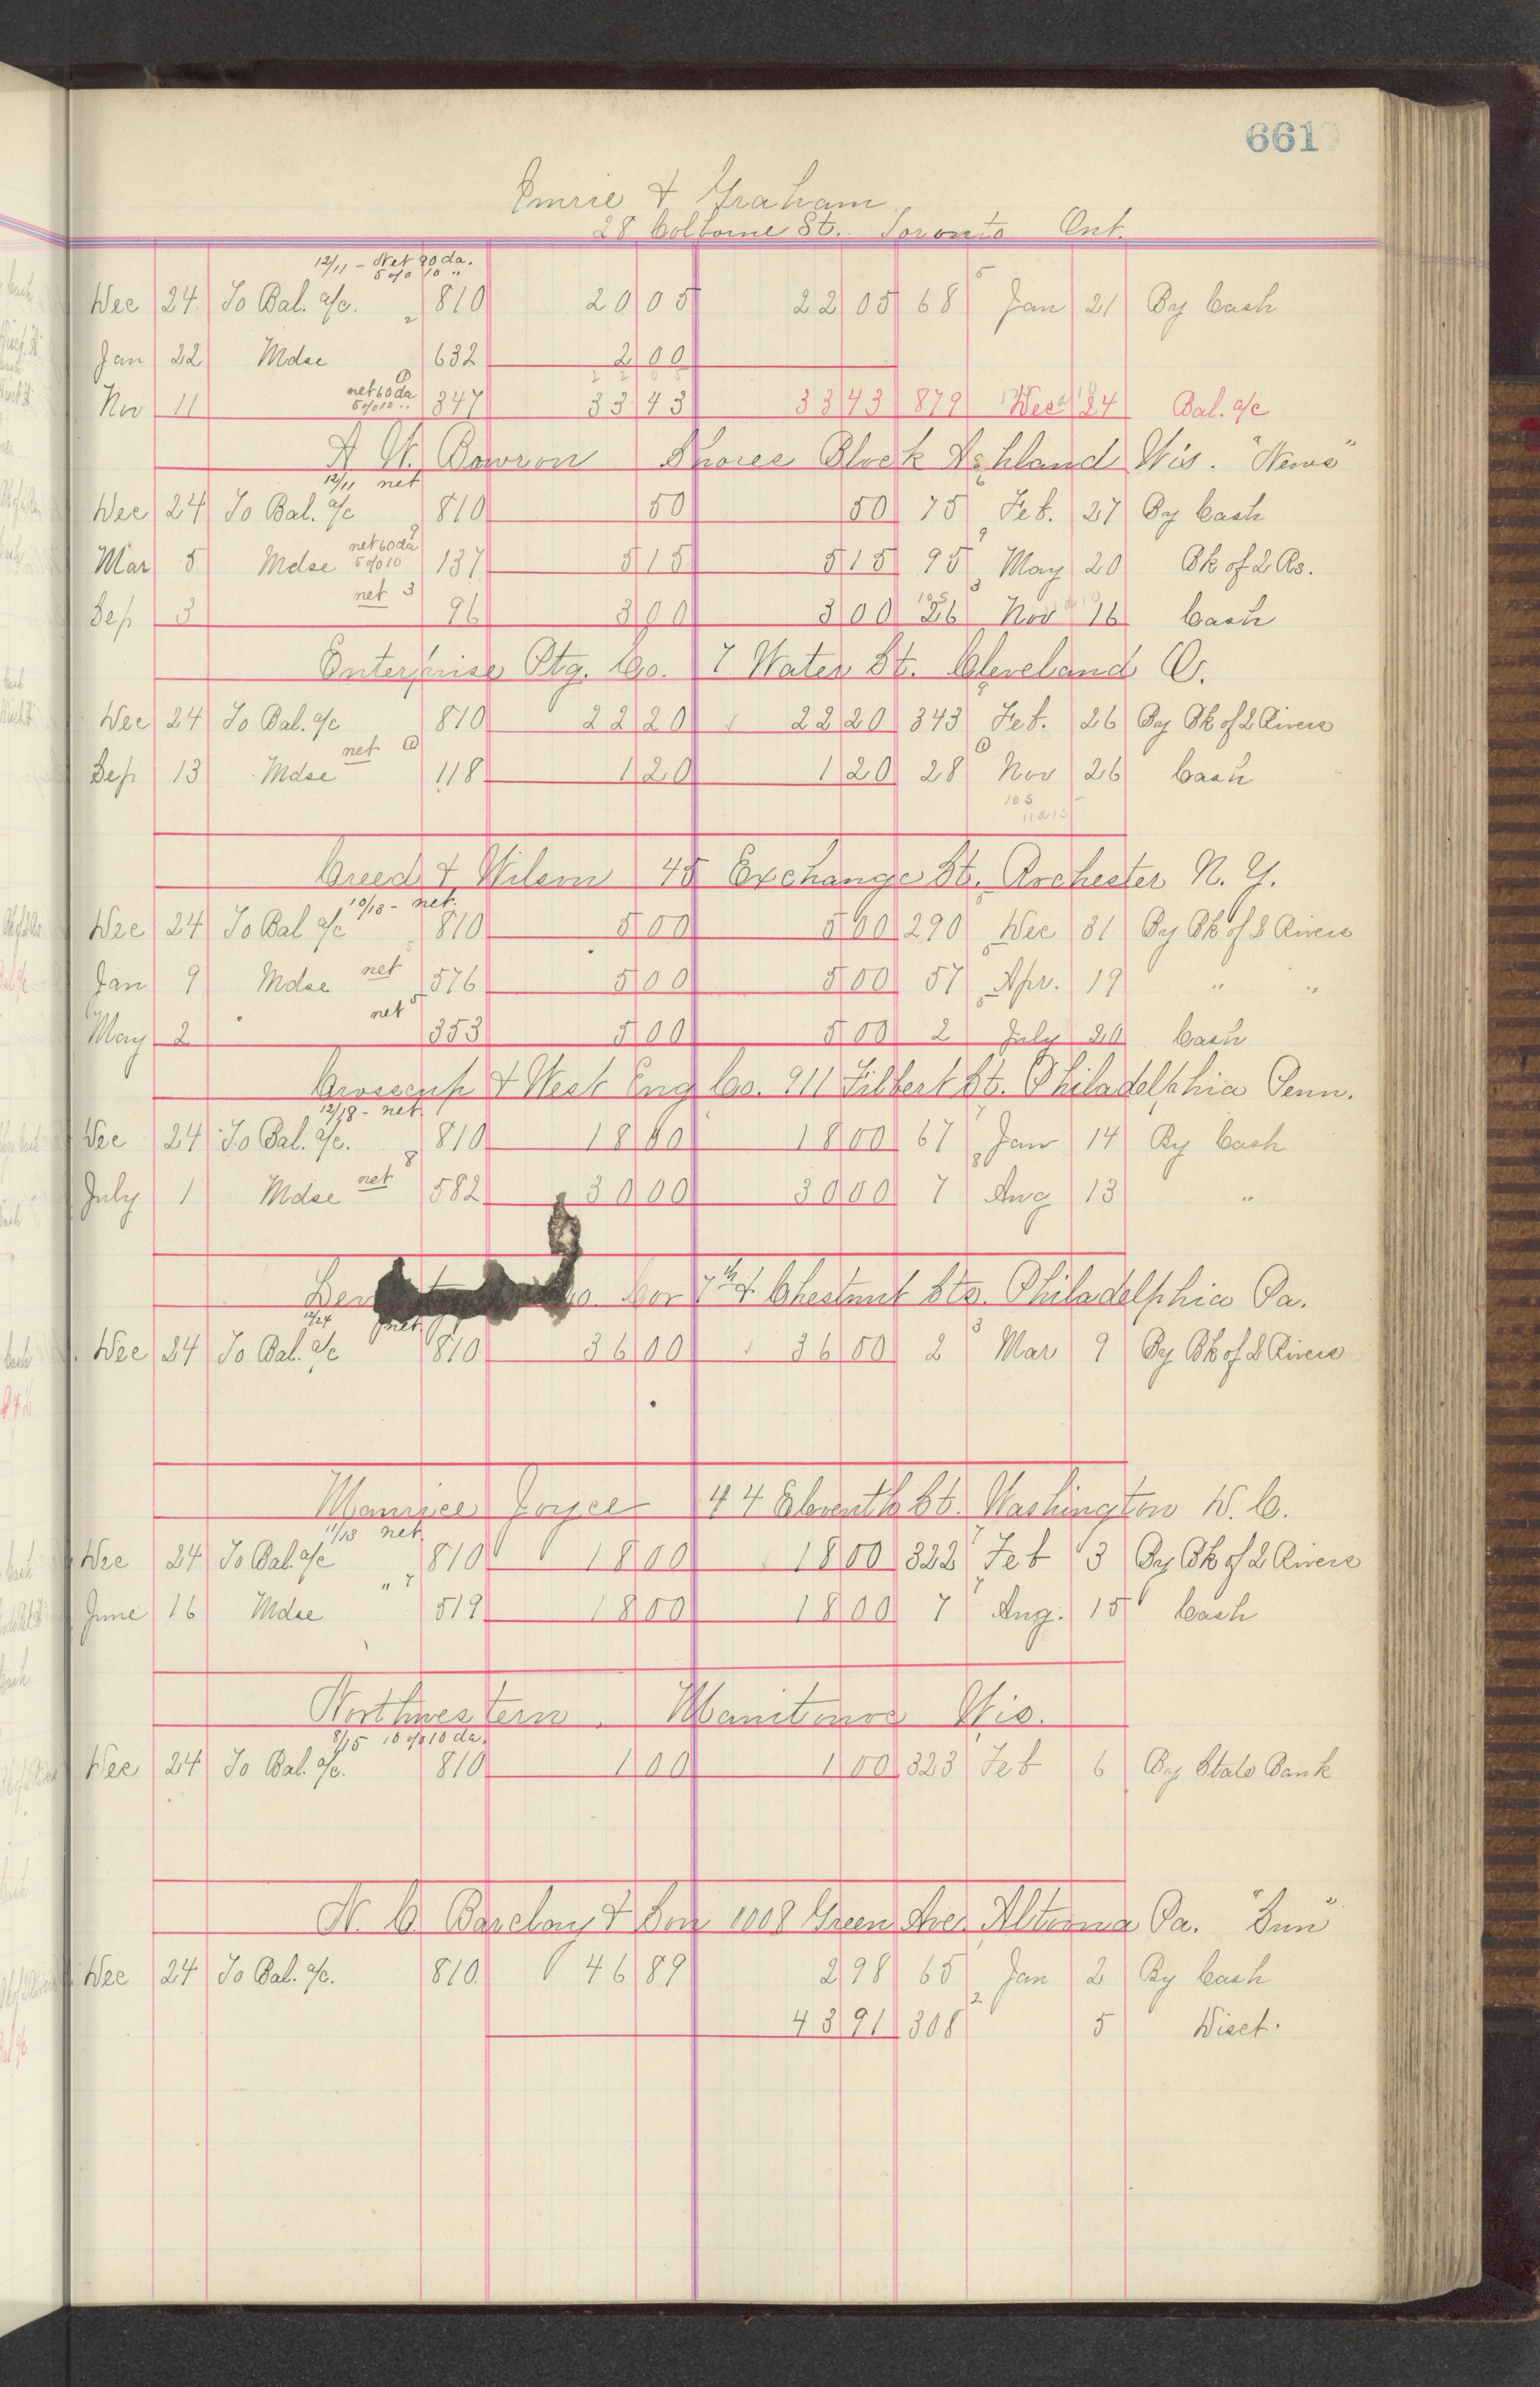 661
Imrie & Graham
28 Colborne St. Toronto Ont.
12/11 - Net 90 da.
5 % 10 "
Dec 24 To Bal. a/c. 810 20 05 22 05 68 Jan 21 By Cash
Jan 22 Mdse 632 2 00
net 60 da
5 % 10 ..
Nov 11 347 33 43 33 43 879 Dec 24 Bal. a/c
A W. Bowron Shores Block Ashland Wis. "News"
12/11 net
Dec 24 To Bal. a/c 810 50 50 75 Feb. 27 By Cash
net 60 da
Mar 5 Mdse 5 % 10 137 5 15 5 15 95 May 20 Bk of 2 Rs.
net 3
Sep 3 96 3 00 3 00 26 Nov 16 Cash
Enterprise Ptg. Co. 7 Water St. Cleveland O.
Dec 24 To Bal. a/c 810 22 20 22 20 343 Feb. 26 By Bk of 2 Rivers
Sep 13 Mdse net 118 1 20 1 20 28 Nov 26 Cash
105
Creed & Wilson 45 Exchange St. Rochester N. Y.
10/18 - net.
Dec 24 To Bal a/c 810 5 00 5 00 290 Dec 31 By Bk of 2 Rivers
Jan 9 Mdse net 576 5 00 5 00 57 Apr. 19 " "
net 5
May 2 353 5 00 5 00 2 July 20 Cash
Crosscup & West Eng Co. 911 Filbert St. Philadelphia Penn.
12/18 - net.
Dec 24 To Bal. a/c. 810 18 00 18 00 67 Jan 14 By Cash
July 1 Mdse net 8 582 30 00 30 00 7 Aug 13 "
Co. Cor 7th & Chestnut Sts. Philadelphia Pa.
12/24 net.
Dec 24 To Bal. a/c 810 36 00 36 00 2 Mar 9 By Bk of 2 Rivers
Maurice Joyce 44 Eleventh St. Washington D. C.
11/13 net.
Dec 24 To Bal. a/c 810 18 00 18 00 322 Feb 3 By Bk of 2 Rivers
June 16 Mdse " 7 519 18 00 18 00 7 Aug. 15 Cash
Northwestern. Manitowoc Wis.
8/15 10 % 10 da.
Dec 24 To Bal. a/c. 810 1 00 1 00 323 Feb 6 By State Bank
H. C. Barclay & Son 1008 Green Ave. Altoona Pa. "Sun"
Dec 24 To Bal. a/c. 810 46 89 2 98 65 Jan 2 By Cash
43 91 308 5 Disct.